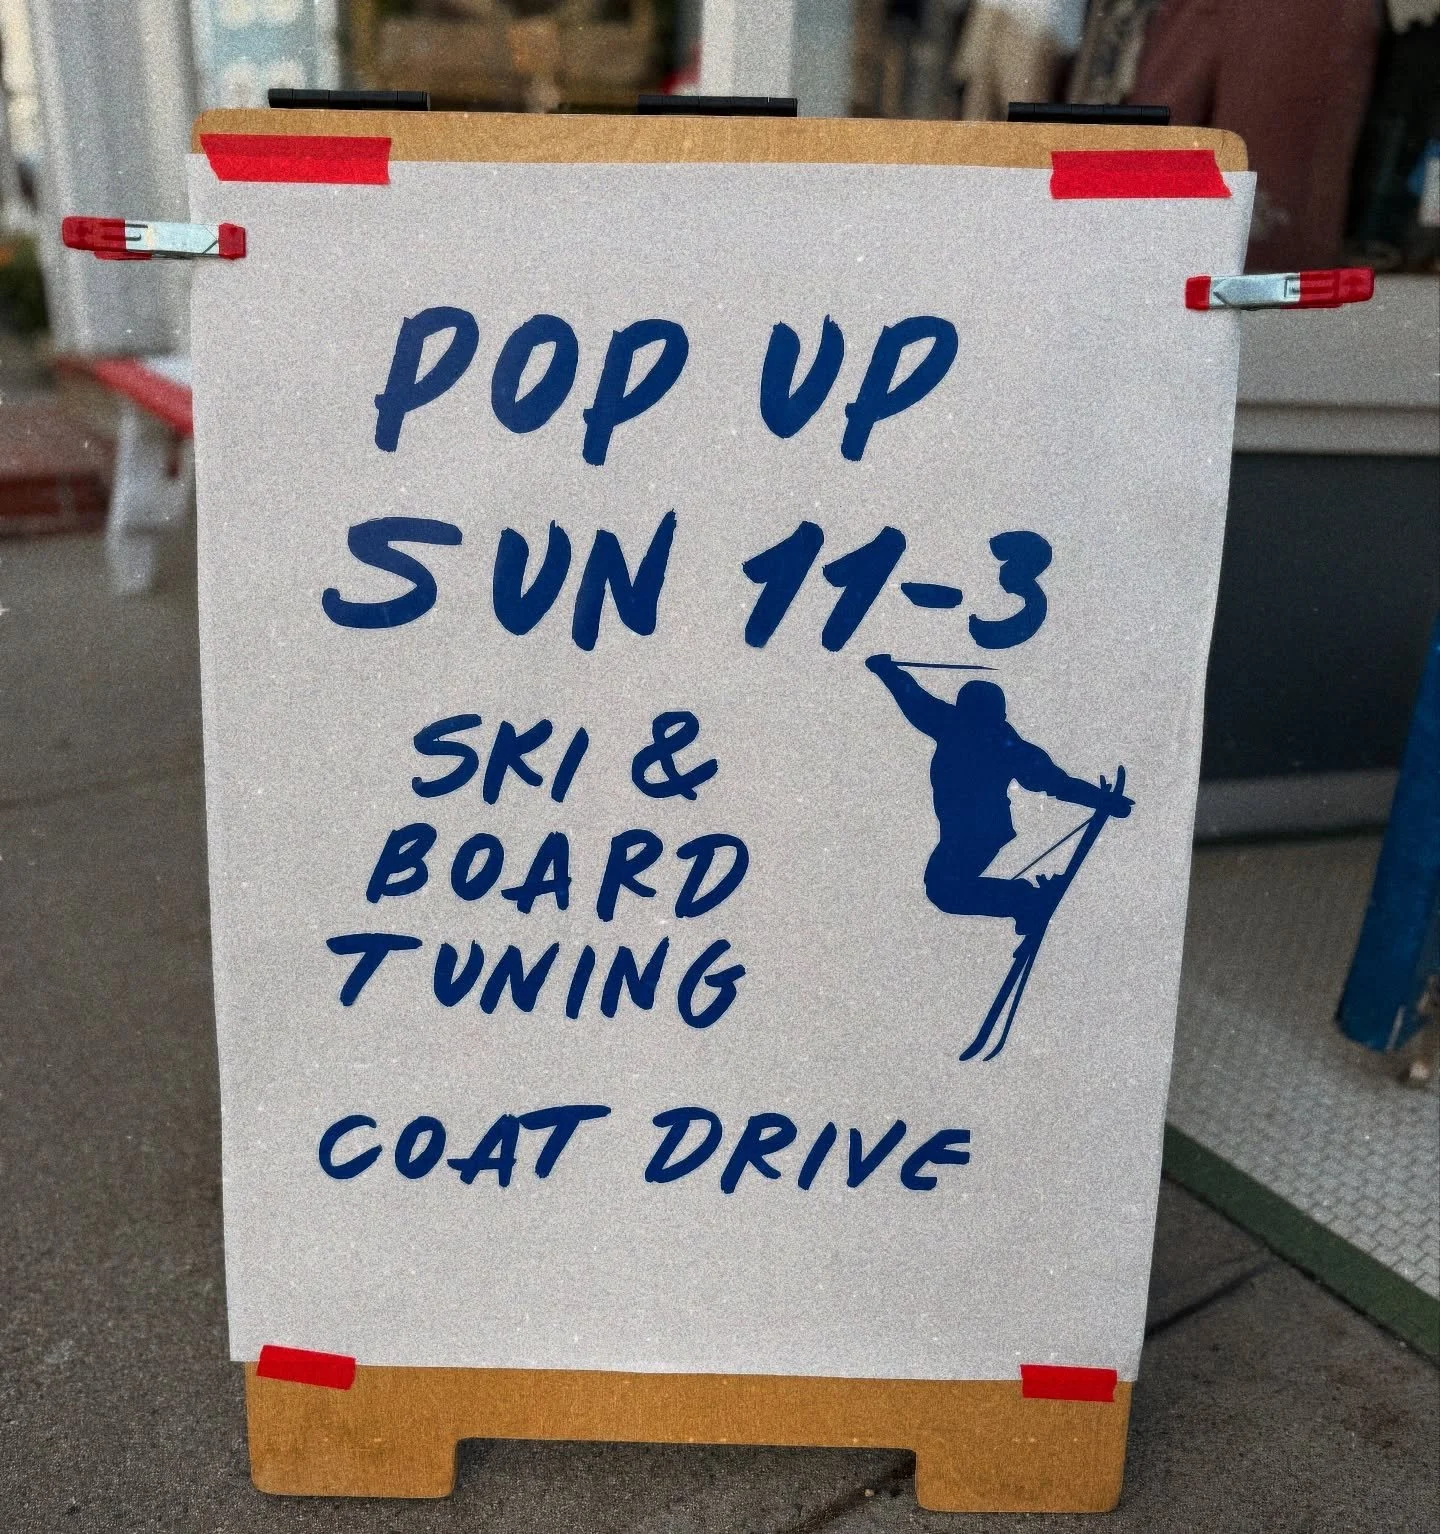 POP UP
SUN 11-3
SKI &
BOARD
TUNING
COAT DRIVE